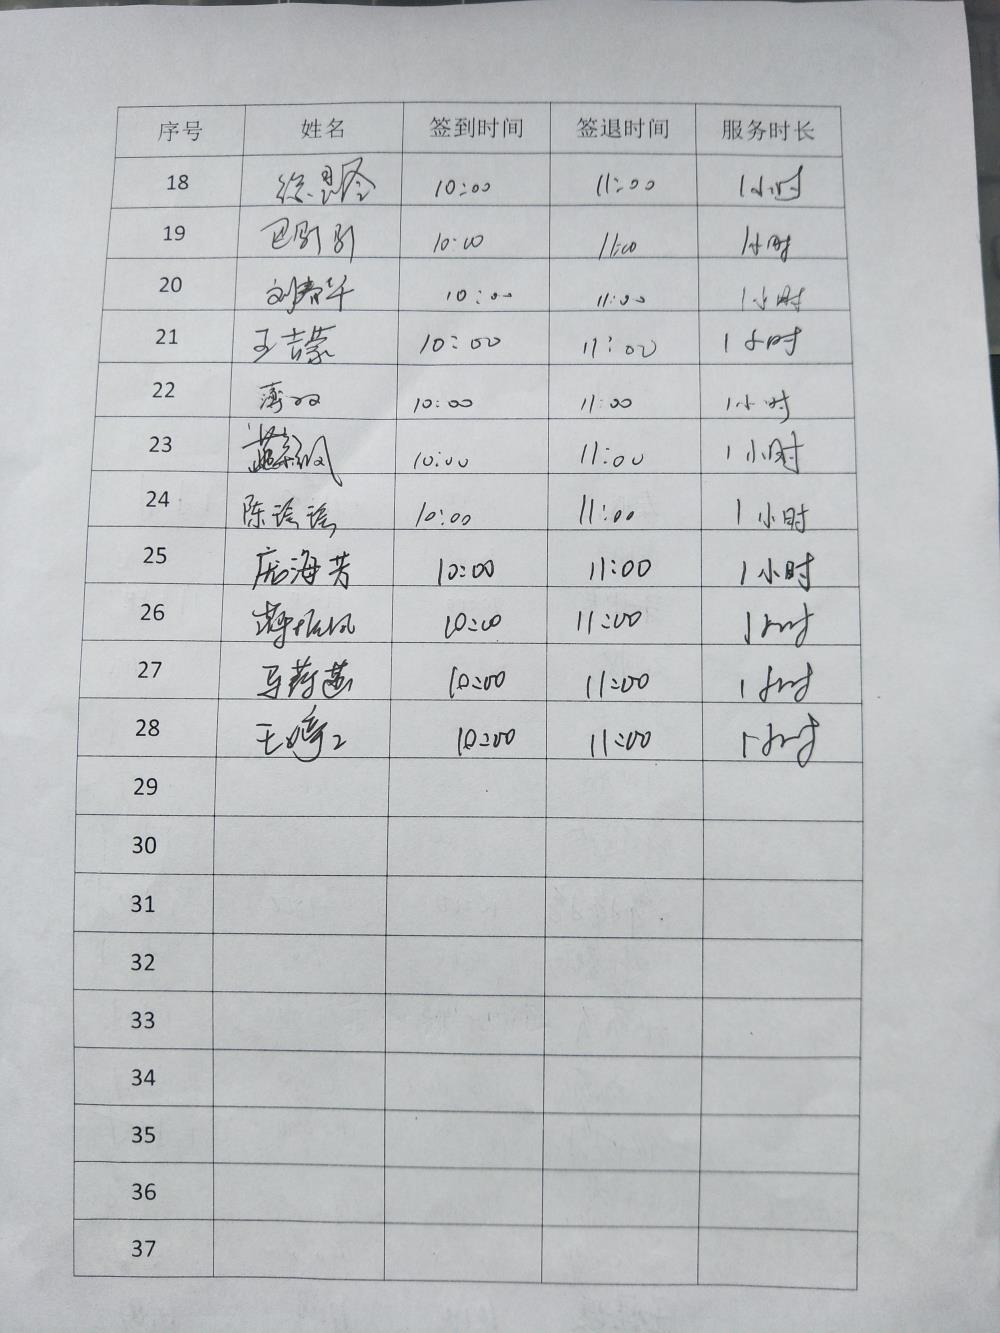 序号 姓名 签到时间 签退时间 服务时长
18 10:00 11:00 1小时
19 10:00 11:00 1小时
20 刘春华 10:00 11:00 1小时
21 王吉蒙 10:00 11:00 1小时
22 10:00 11:00 1小时
23 10:00 11:00 1小时
24 陈瑶瑶 10:00 11:00 1小时
25 庞海芳 10:00 11:00 1小时
26 10:00 11:00 1小时
27 10:00 11:00 1小时
28 10:00 11:00 1小时
29
30
31
32
33
34
35
36
37